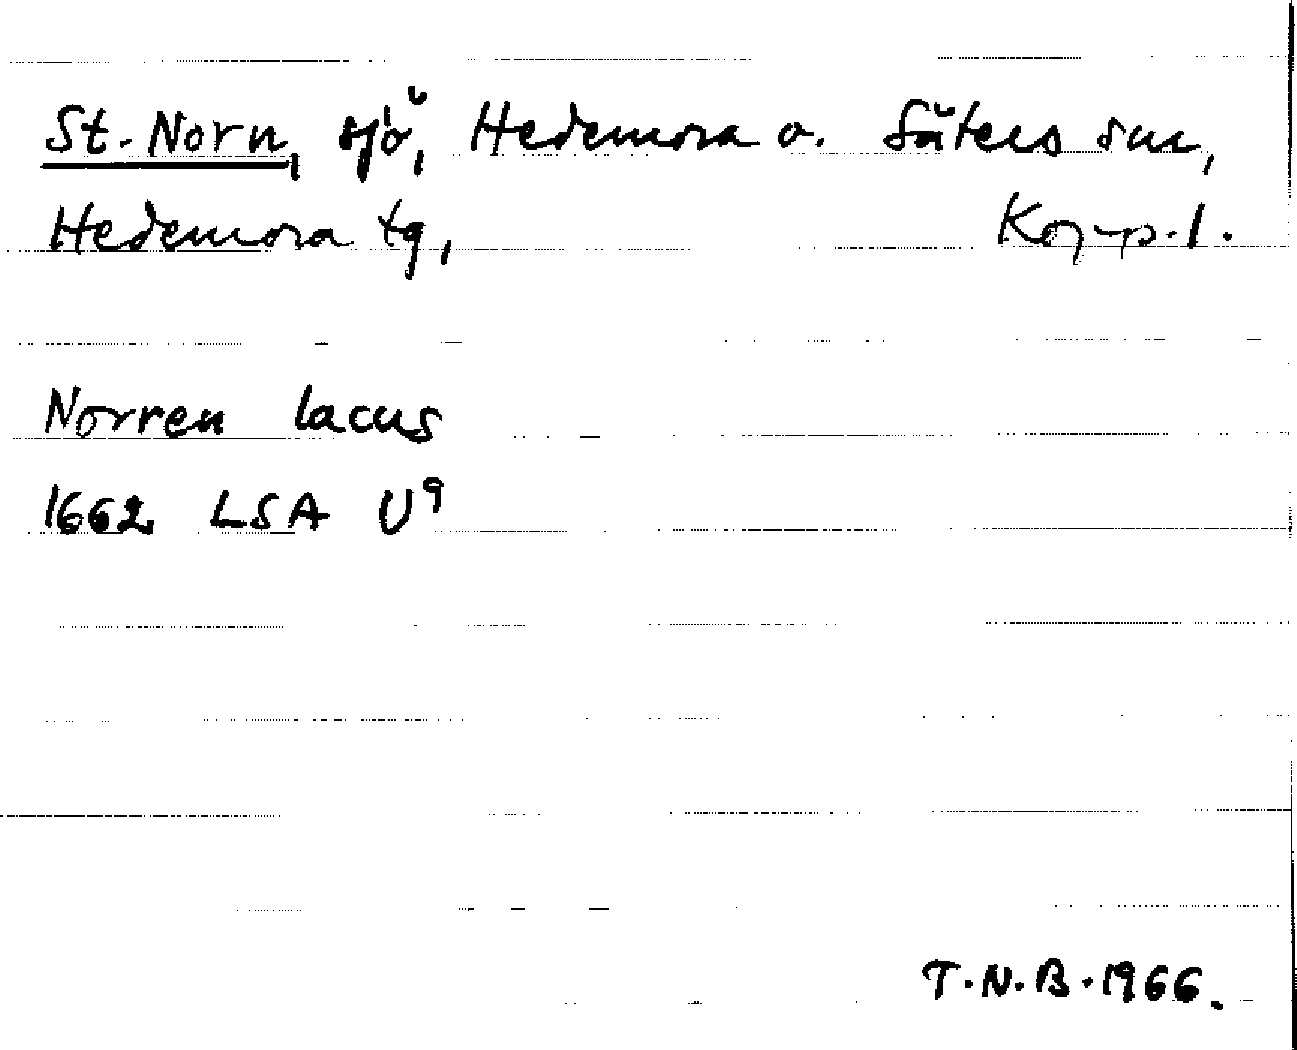 St. Norn, sjö, Hedemora o. Säters snr,
Hedemora tg, Kopp. l.
Norren lacus
1662 LSA U9
T.N.B. 1966.